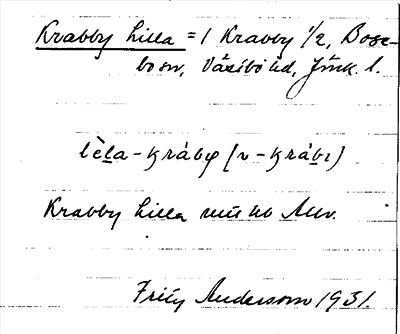 Krabby Lilla = 1 Krabby 1/2, Bose-
bo sn, Västbo hd, Jönk. l.
lèla-kráby (v-krábı)
Krabby Lilla
Fritz Anderson 1931.